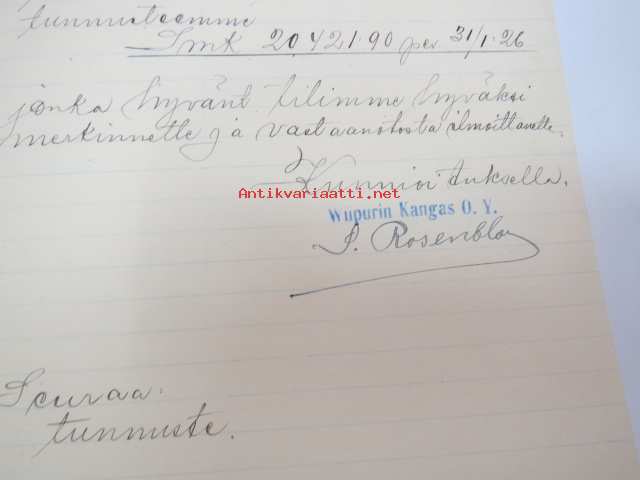 tunnusteemme
Smk 20421.90 per 31/1.26
jonka hyvänt. tilimme hyväksi
merkinnette ja vastaanotosta ilmoittanette.
Kunnioituksella.
Antikvariaatti.net
Wupurin Kangas O. Y.
S. Rosenblom
Seuraa.
tunnuste.